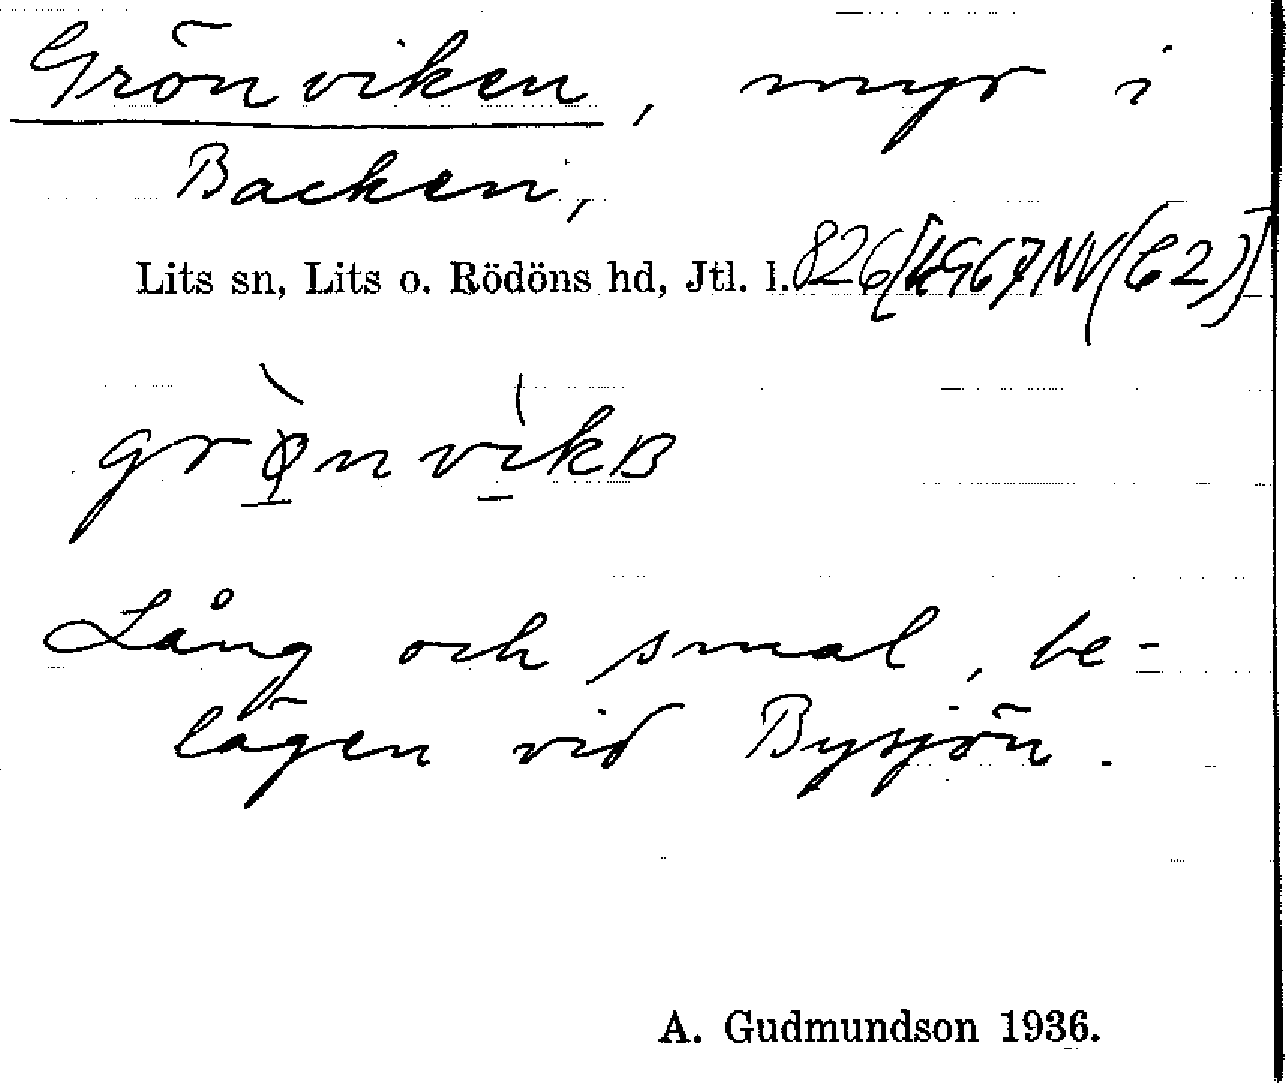 Grönviken, myr i
Backen,
Lits sn, Lits o. Rödöns hd, Jtl. l.
Lång och smal, be-
lägen vid Bysjön.
A. Gudmundson 1936.